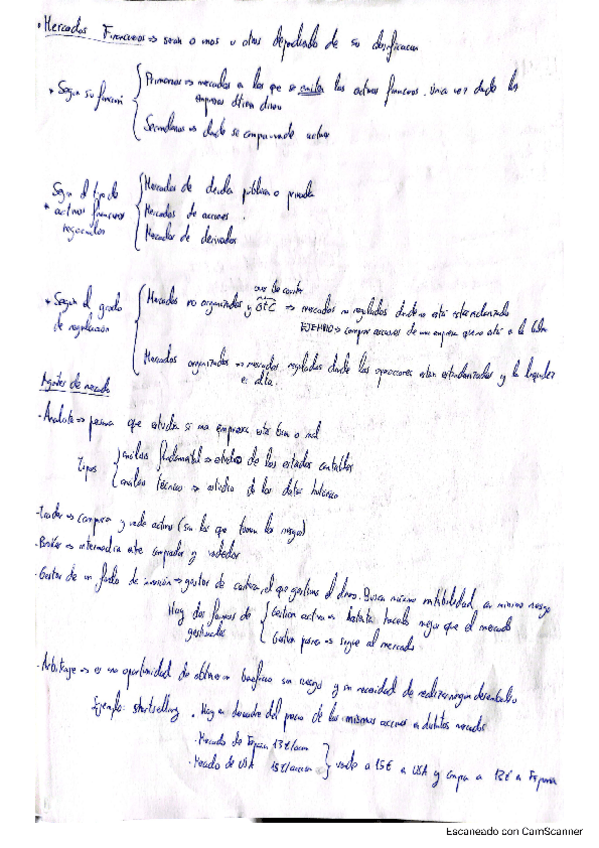 • Mercados Financieros => sean o unos u otros dependiendo de su clasificacion
* Según su función { Primarios => mercados en los que se emiten los activos financieros. Única vez donde las
empresas obtienen dinero
Secundarios => donde se compra-vende activos
* Según el tipo de activos financieros negociados { Mercados de deuda pública o privada
Mercados de acciones.
Mercados de derivados
* Según el grado de regulación { Mercados no organizados y OTC => mercados no regulados donde no está estandarizado
over the counter
EJEMPLO => comprar acciones de una empresa que no está en la bolsa
Mercados organizados => mercados regulados donde las operaciones estan estandarizadas y la liquidez
es alta.
Agentes de mercado
- Analista => persona que estudia si una empresa está bien o mal
Tipos { análisis fundamental => estudio de los estados contables
análisis técnico => estudio de los datos históricos
- Trader => compra y vende activos (son los que toman los riesgos)
- Broker => intermedia entre comprador y vendedor
- Gestor de un fondo de inversión => gestor de cartera, el que gestiona el dinero. Busca máxima rentabilidad, con mínimo riesgo
Hay dos formas de gestionarlos { Gestión activa => hacerlo mejor que el mercado
Gestión pasiva => sigue al mercado
- Arbitraje => es una oportunidad de obtener beneficio sin riesgo y sin necesidad de realizar ningún desembolso
Ejemplo: shortselling. Hay un descuadre del precio de las mismas acciones en distintos mercados
• Mercado de España 13€/accion
• Mercado de USA 15€/accion } vendo a 15€ en USA y compro a 12€ en España
Escaneado con CamScanner